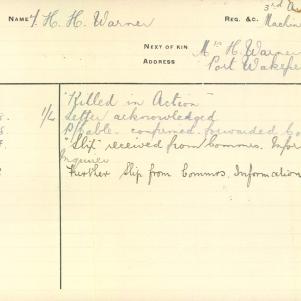 NAME H. H. Warner
REG. &C. 3rd Au
Machin
NEXT OF KIN Mrs H. Warner
ADDRESS Port Wakefie
"Killed in Action"
1/2 Letter acknowledged
confirmed forwarded
"Slip" received from Commos. Infor
Inquiries
Further Slip from Commos. Information